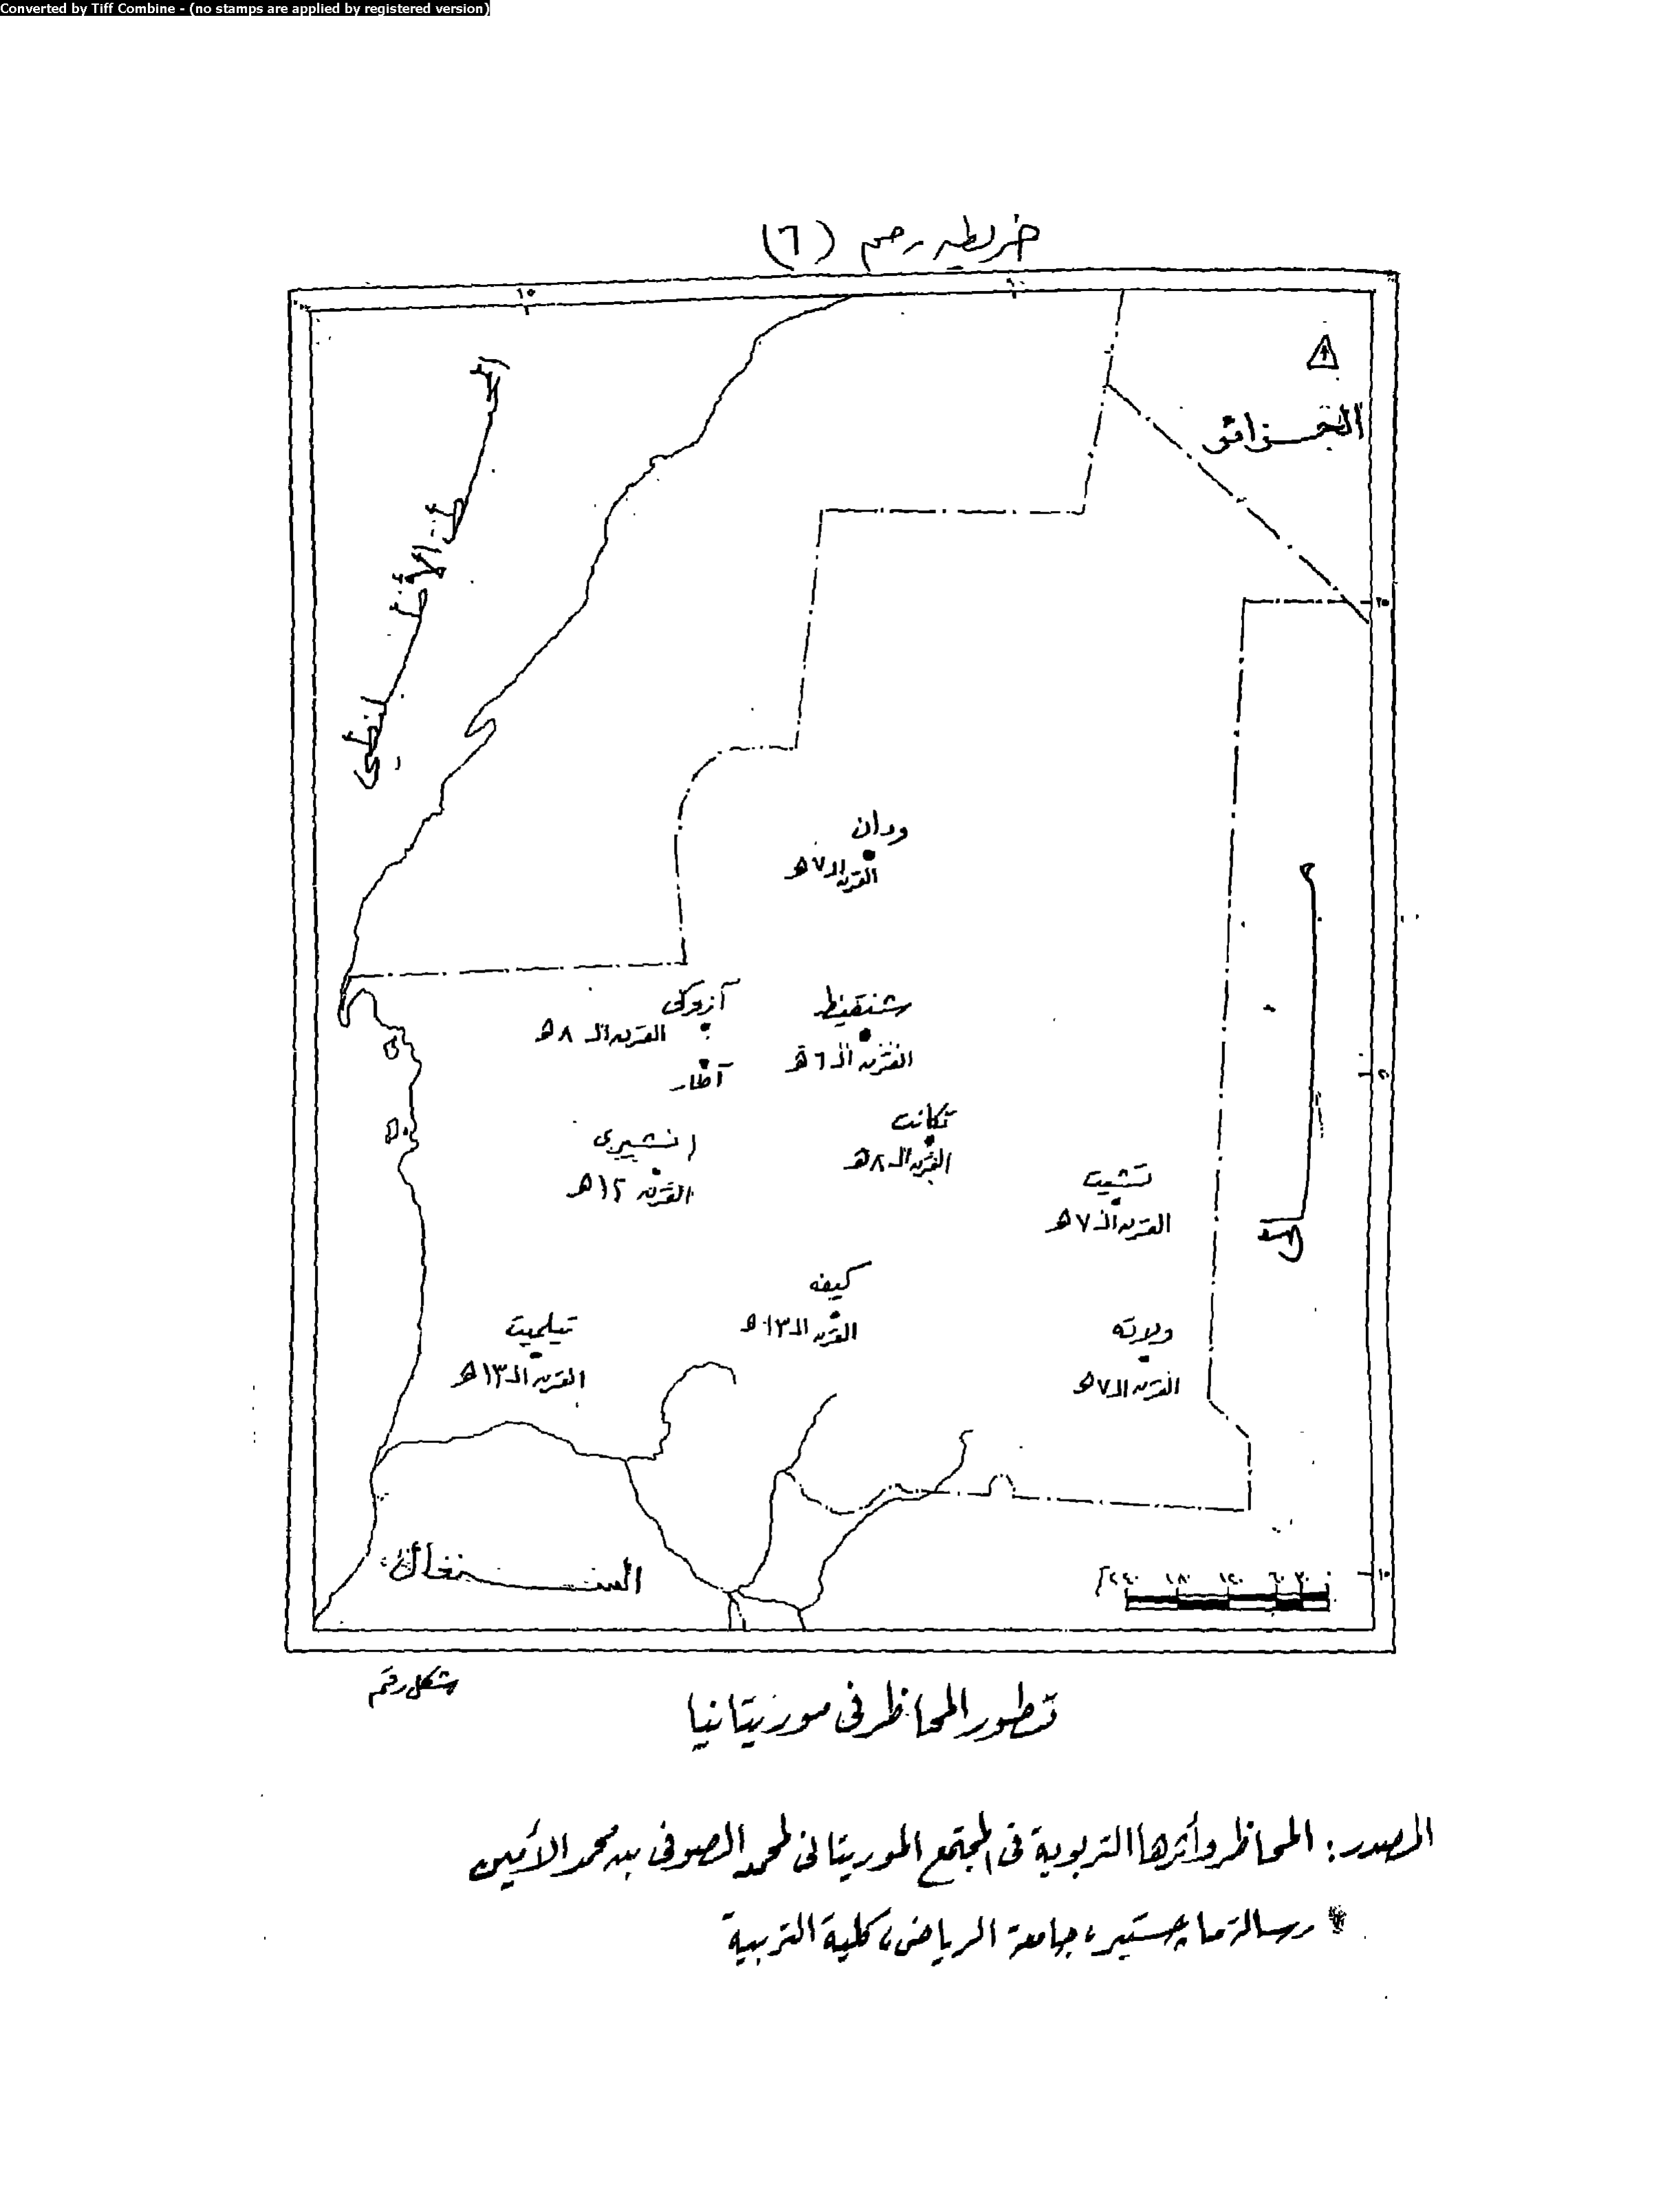 Converted by Tiff Combine - (no stamps are applied by registered version)
خريطه رقم (٦)
١٥
١٠
الجزائر
المحيط الأطلنطي
٢٥
ودان
القرن الـ ٧ هـ
آزوكى
القرن الـ ٨ هـ
شنقيط
القرن الـ ٦ هـ
آطار
تكانت
القرن الـ ٨ هـ
انشيرى
القرن ١٢ هـ
تشيت
القرن الـ ٧ هـ
مالي
كيفه
القرن الـ ١٣ هـ
تيلميت
القرن الـ ١٣ هـ
ولاته
القرن الـ ٧ هـ
السنغال
٢٤٠ ١٨٠ ١٢٠ ٦٠ ٣٠ ٠
١٥
شكل رقم
تطور المحاظر فى موريتانيا
المصدر: المحاظر وأثرها التربوية فى المجتمع الموريتانى لمحمد الصوفى بن محمد الأمين
* رسالة ماجستير، جامعة الرياض، كلية التربية